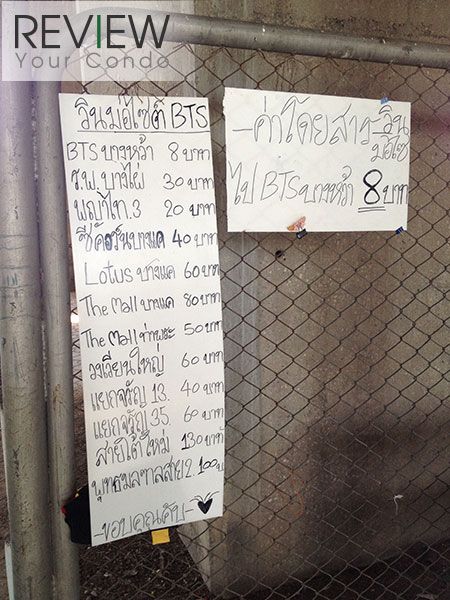 REVIEW
Your Condo
วินมอไซต์ BTS
BTS บางหว้า 8 บาท
ร.พ. บางไผ่ 30 บาท
พญาไท.3 20 บาท
ซีคอนบางแค 40 บาท
Lotus บางแค 60 บาท
The Mall บางแค 80 บาท
The Mall ท่าพระ 50 บาท
วงเวียนใหญ่ 60 บาท
แยกจรัญ 13. 40 บาท
แยกจรัญ 35. 60 บาท
สายใต้ใหม่ 130 บาท
พุทธมณฑลสาย 2. 100 บ
-ขอบคุณคับ-
-ค่าโดยสาร-วินมอไซ
ไป BTS บางหว้า 8 บาท